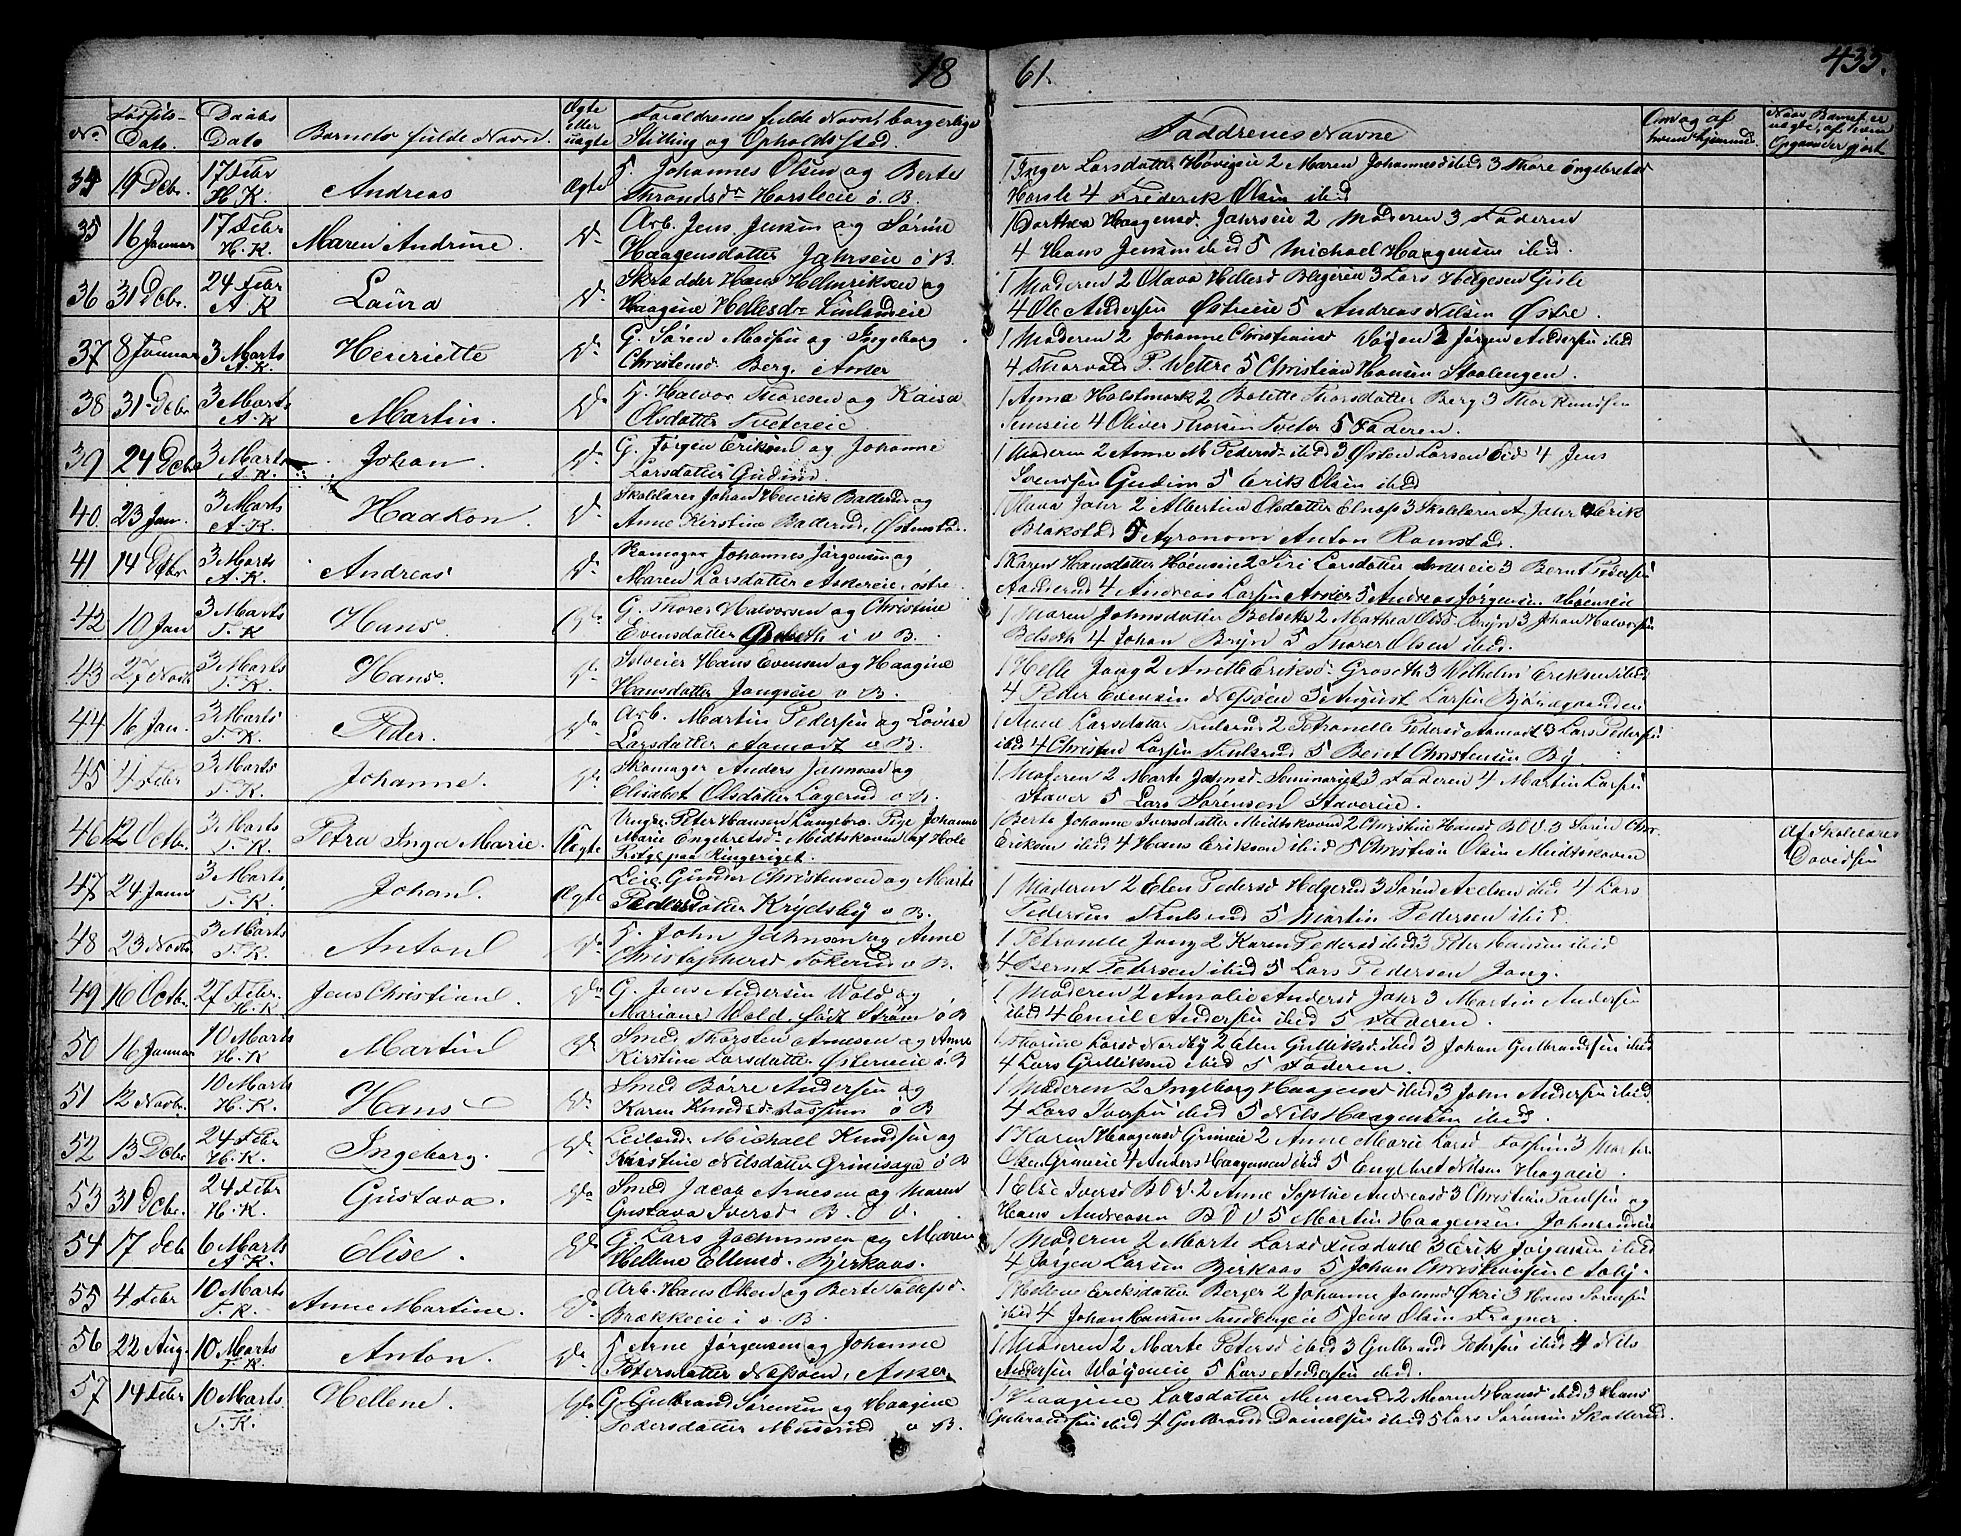 18 61. 433.
No Fødsels-Dato. Daabs Dato Barnets fulde Navn. Ægte eller uægte Forældrenes fulde Navn, borgerlige Stilling og Opholdssted. Faddrenes Navne
34 19 Dcbr. 17 Febr H.K. Andreas Ægte Johannes Olsen og Berte
Ø. B. 1 Inger Larsdatter Høvigeie 2 Maren Johannesd ibid 3 Thore Engebretsen
4 Frederik Olsen ibid
35 16 Januar 17 Febr H.K. Maren Andrine. Do Arb. Jens Jensen og Sørine
Haagensdatter Jahrseie ø B. 1 Dorthea Haagensd. Jahrseie 2 Moderen 3 Faderen
4 Hans Jensen ibid 5 Michael Haagensen ibid.
36 31 Dcbr. 24 Febr A.K Laura Do Skrædder Hans Helmriksen og
Haagine Hellesdr 1 Moderen 2 Olava Hellesd 3 Lars Helgesen Gisle
4 Ole Andersen Østreeie 5 Andreas Nilsen Østre.
37 8 Januar 3 Marts A.K. Henriette Do G. Søren Madsen og Ingeborg
Christensd Berg i Asker 1 Moderen 2 Johanne Christiansd Vøyen 3 Jørgen Andersen ibid
4 Thorvald P. Wettre 5 Christian Hansen Staalengen.
38 31 Dcbr 3 Marts A.K Martin. Do G. Halvor Thoresen og Kaisa
Olsdatter Tvetereie 1 Anna Holstmark 2 Bolette Thorsdatter Berg 3 Thor Knudsen
4 Oliver Tveter 5 Faderen.
39 24 Dcbr 3 Marts A.K. Johan. Do G. Jørgen Eriksen og Johanne
Larsdatter Gudim 1 Moderen 2 Anne M Pedersd ibid 3 Østen Larsen Eid 4 Jens
Svendsen Gudim 5 Erik Olsen ibid
40. 23 Jan. 3 Marts A.K. Haakon. Do Skolelærer Johan Henrik Ballerud og
Anne Kirstine Ballerud, Østenstad. 1 Olava Jahr 2 Albertine Olsdatter 3 Skolelærer A Jahr 4 Erik
Blakstad 5 Agronom Anton Ramstad.
41 14 Dcbr 3 Marts A.K. Andreas Do Skomager Johannes Jørgensen og
Maren Larsdatter Askereie, østre 1 Karen Hansdatter 2 Siri Larsdatter 3 Bernt Pedersen
4 Andreas Larsen Asker 5 Andreas Jørgensen
42 10 Jan 3 Marts T.K Hans. Do G. Thorer Halvorsen og Christine
Evensdatter i v B. 1 Maren Johnsdatter Belseth 2 Mathea Olsd Bryn 3 Johan Halvorsen
Belseth 4 Johan Bryn 5 Thorer Olsen ibid.
43 27 Novb 3 Marts T.K. Hans. Do Hans Evensen og Haagine
Hansdatter Jongseie v B. 1 Helle Jong 2 Anette Eriksd. Groseth 3 Wilhelm Eriksen ibid
4 Peder Evensen Nesøen 5 August Larsen Bjørnegaarden
44 16 Jan. 3 Marts T.K. Peder. Do Arb. Martin Pedersen og Lovise
Larsdatter Aamodt v B. 1 Anne Larsdatter Frulsrud 2 Petronelle Pedersd Aamodt 3 Lars Pedersen
ibid 4 Christen Larsen Frulsrud 5 Bernt Christensen By.
45 4 Febr 3 Marts T.K. Johanne. Do Skomager Anders Jahnsen og
Elisabet Olsdatter Lagerud v B. 1 Moderen 2 Marte Jahnsd. Seminariet 3 Faderen 4 Martin Larsen
Staver 5 Lars Sørensen Stavereie.
46 12 Octbr. 3 Marts T.K. Petra Inga Marie. Uægte Ungkr. Peter Hansen Langebro. Pige Johanne
Marie Engebretsdr Meidtskoven af Hole
Sogn paa Ringeriget. 1 Berte Johanne Iversdatter Meidtskoven 2 Christine Hansd BØV. 3 Søren Chr.
Eriksen ibid 4 Hans Eriksen ibid 5 Christian Olsen Meidtskoven af Skolelærer Davidsen
47 24 Janr 3 Marts T.K. Johan. Ægte Leil. Gunder Christensen og Marte
Pedersdatter Krydsby v B. 1 Moderen 2 Elen Pedersd Helgerud 3 Søren Axelsen ibid 4 Lars
Pedersen Frulsrud 5 Martin Pedersen ibid.
48 23 Novb. 3 Marts T.K. Anton Do John Jahnsen og Anne
Christophersd Tokerud v B. 1 Petronelle Jong 2 Karen Pedersd ibid 3 Peter Hansen ibid
4 Bernt Petersen ibid 5 Lars Pedersen Jong.
49 16 Octbr. 27 Febr. H.K. Jens Christian Do G. Jens Andersen Wold og
Mariane Wold, født Strøm ø B 1 Moderen 2 Amalie Andersd Jahr 3 Martin Andersen
ibid 4 Emil Andersen ibid 5 Faderen.
50 16 Januar 10 Marts H.K Martin Do Smed Thorsten Arnesen og Anne
Kirstine Larsdatter Østerneie ø. B 1 Thorine Larsd Nordby 2 Elen Gulliksd. ibid 3 Johan Gulbrandsen ibid
4 Lars Gulliksen ibid 5 Faderen.
51 12 Novbr. 10 Marts H.K. Hans Do Smed Børre Andersen og
Karen Knudsd. Fossum ø B 1 Moderen 2 Ingeborg Haagensd ibid 3 John Andersen ibid.
4 Lars Iversen ibid 5 Nils Haagensen ibid.
52 13 Dcbr. 24 Febr H.K. Ingeborg. Do Michael Knudsen og
Kirstine Nilsdatter Grinisaga ø B 1 Karen Haagensd Grinieie 2 Anne Marie Larsd Fossum 3
Grinieie 4 Anders Haagensen ibid 5 Engebret Nilsen Haagaeie.
53 31 Dcbr. 24 Febr H.K. Gustava. Do Smed Jacob Arnesen og Maren
Gustava Iversd. B. Ø V. 1 Else Iversd B Ø V. 2 Anne Sophie Andreasd 3 Christian Paulsen og
Hans Andreasen B Ø V 5 Martin Haagensen Johnsrudeie
54 17 Dcbr 6 Marts A.K. Elise. Do G. Lars og Maren
Hellene Ellensd. Bjerkaas. 1 Moderen 2 Marte Larsd Fusdahl 3 Erik Jørgensen ibid
4 Jørgen Larsen Bjerkaas 5 Johan Christiansen Aaby.
55 4 Febr 10 Marts T.K. Anne Martine. Do Arb. Hans Olsen og Berte
Brækkeeie i v. B. 1 Hellene Eriksdatter Berger 2 Johanne Johnsd Økri 3 Hans Sørensen
ibid 4 Johan Hansen 5 Jens Olsen Frogner.
56 22 Aug. 10 Marts T.K. Anton. Do Arne Jørgensen og Johanne
Petersdatter Nesøen, Asker. 1 Moderen 2 Marte Petersd ibid 3 Gulbrand Petersen ibid 4 Nils
Andersen Vøyeneie 5 Lars Andersen ibid.
57 14 Febr 10 Marts T.K. Hellene. Do G. Gulbrand Sørensen og Haagine
Pedersdatter v B. 1 Haagine Larsdatter 2 Maren Hansd ibid 3 Hans
Gulbrandsen ibid 4 Gulbrand Danielsen ibid 5 Lars Sørensen Skollerud.